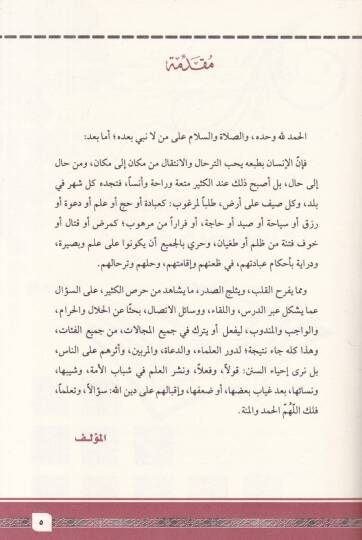 مُقدِّمة
الحمد لله وحده، والصلاة والسلام على من لا نبي بعده؛ أما بعد:
فإنّ الإنسان بطبعه يحب الترحال والانتقال من مكان إلى مكان، ومن حال
إلى حال، بل أصبح ذلك عند الكثير متعة وراحة وأنساً، فتجده كل شهر في
بلد، وكل صيف على أرض، طلباً لمرغوب: كعبادة أو حج أو علم أو دعوة أو
رزق أو سياحة أو صيد أو حاجة، أو فراراً من مرهوب؛ كمرض أو قتال أو
خوف فتنة من ظلم أو طغيان، وحري بالجميع أن يكونوا على علم وبصيرة،
ودراية بأحكام عبادتهم، في ظعنهم وإقامتهم، وحلهم وترحالهم.
ومما يفرح القلب، ويثلج الصدر، ما يشاهد من حرص الكثير، على السؤال
عما يشكل عبر الدرس، واللقاء، ووسائل الاتصال، بحثًا عن الحلال والحرام،
والواجب والمندوب، ليفعل أو يترك في جميع المجالات، من جميع الفئات،
وهذا كله جاء نتيجة؛ لدور العلماء، والدعاة، والمربين، وأثرهم على الناس،
بل نرى إحياء السنن: قولاً، وفعلاً، ونشر العلم في شباب الأمة، وشيبها،
ونسائها، بعد غياب بعضها، أو ضعفها، وإقبالهم على دين الله: سؤالاً، وتعلماً،
فلك اللّهُمّ الحمد والمنة.
المؤلف
٥